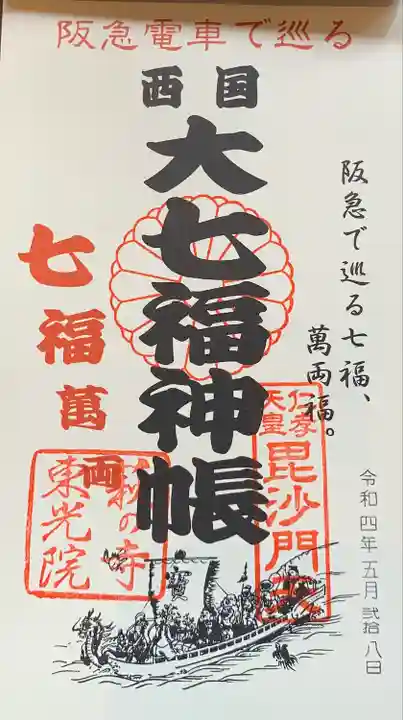 阪急電車で巡る
西国
大七福神帳
阪急で巡る七福、
萬両福。
七福萬両
仁孝
天皇
毘沙門天
萩の寺
東光院
令和四年五月弐拾八日
寳